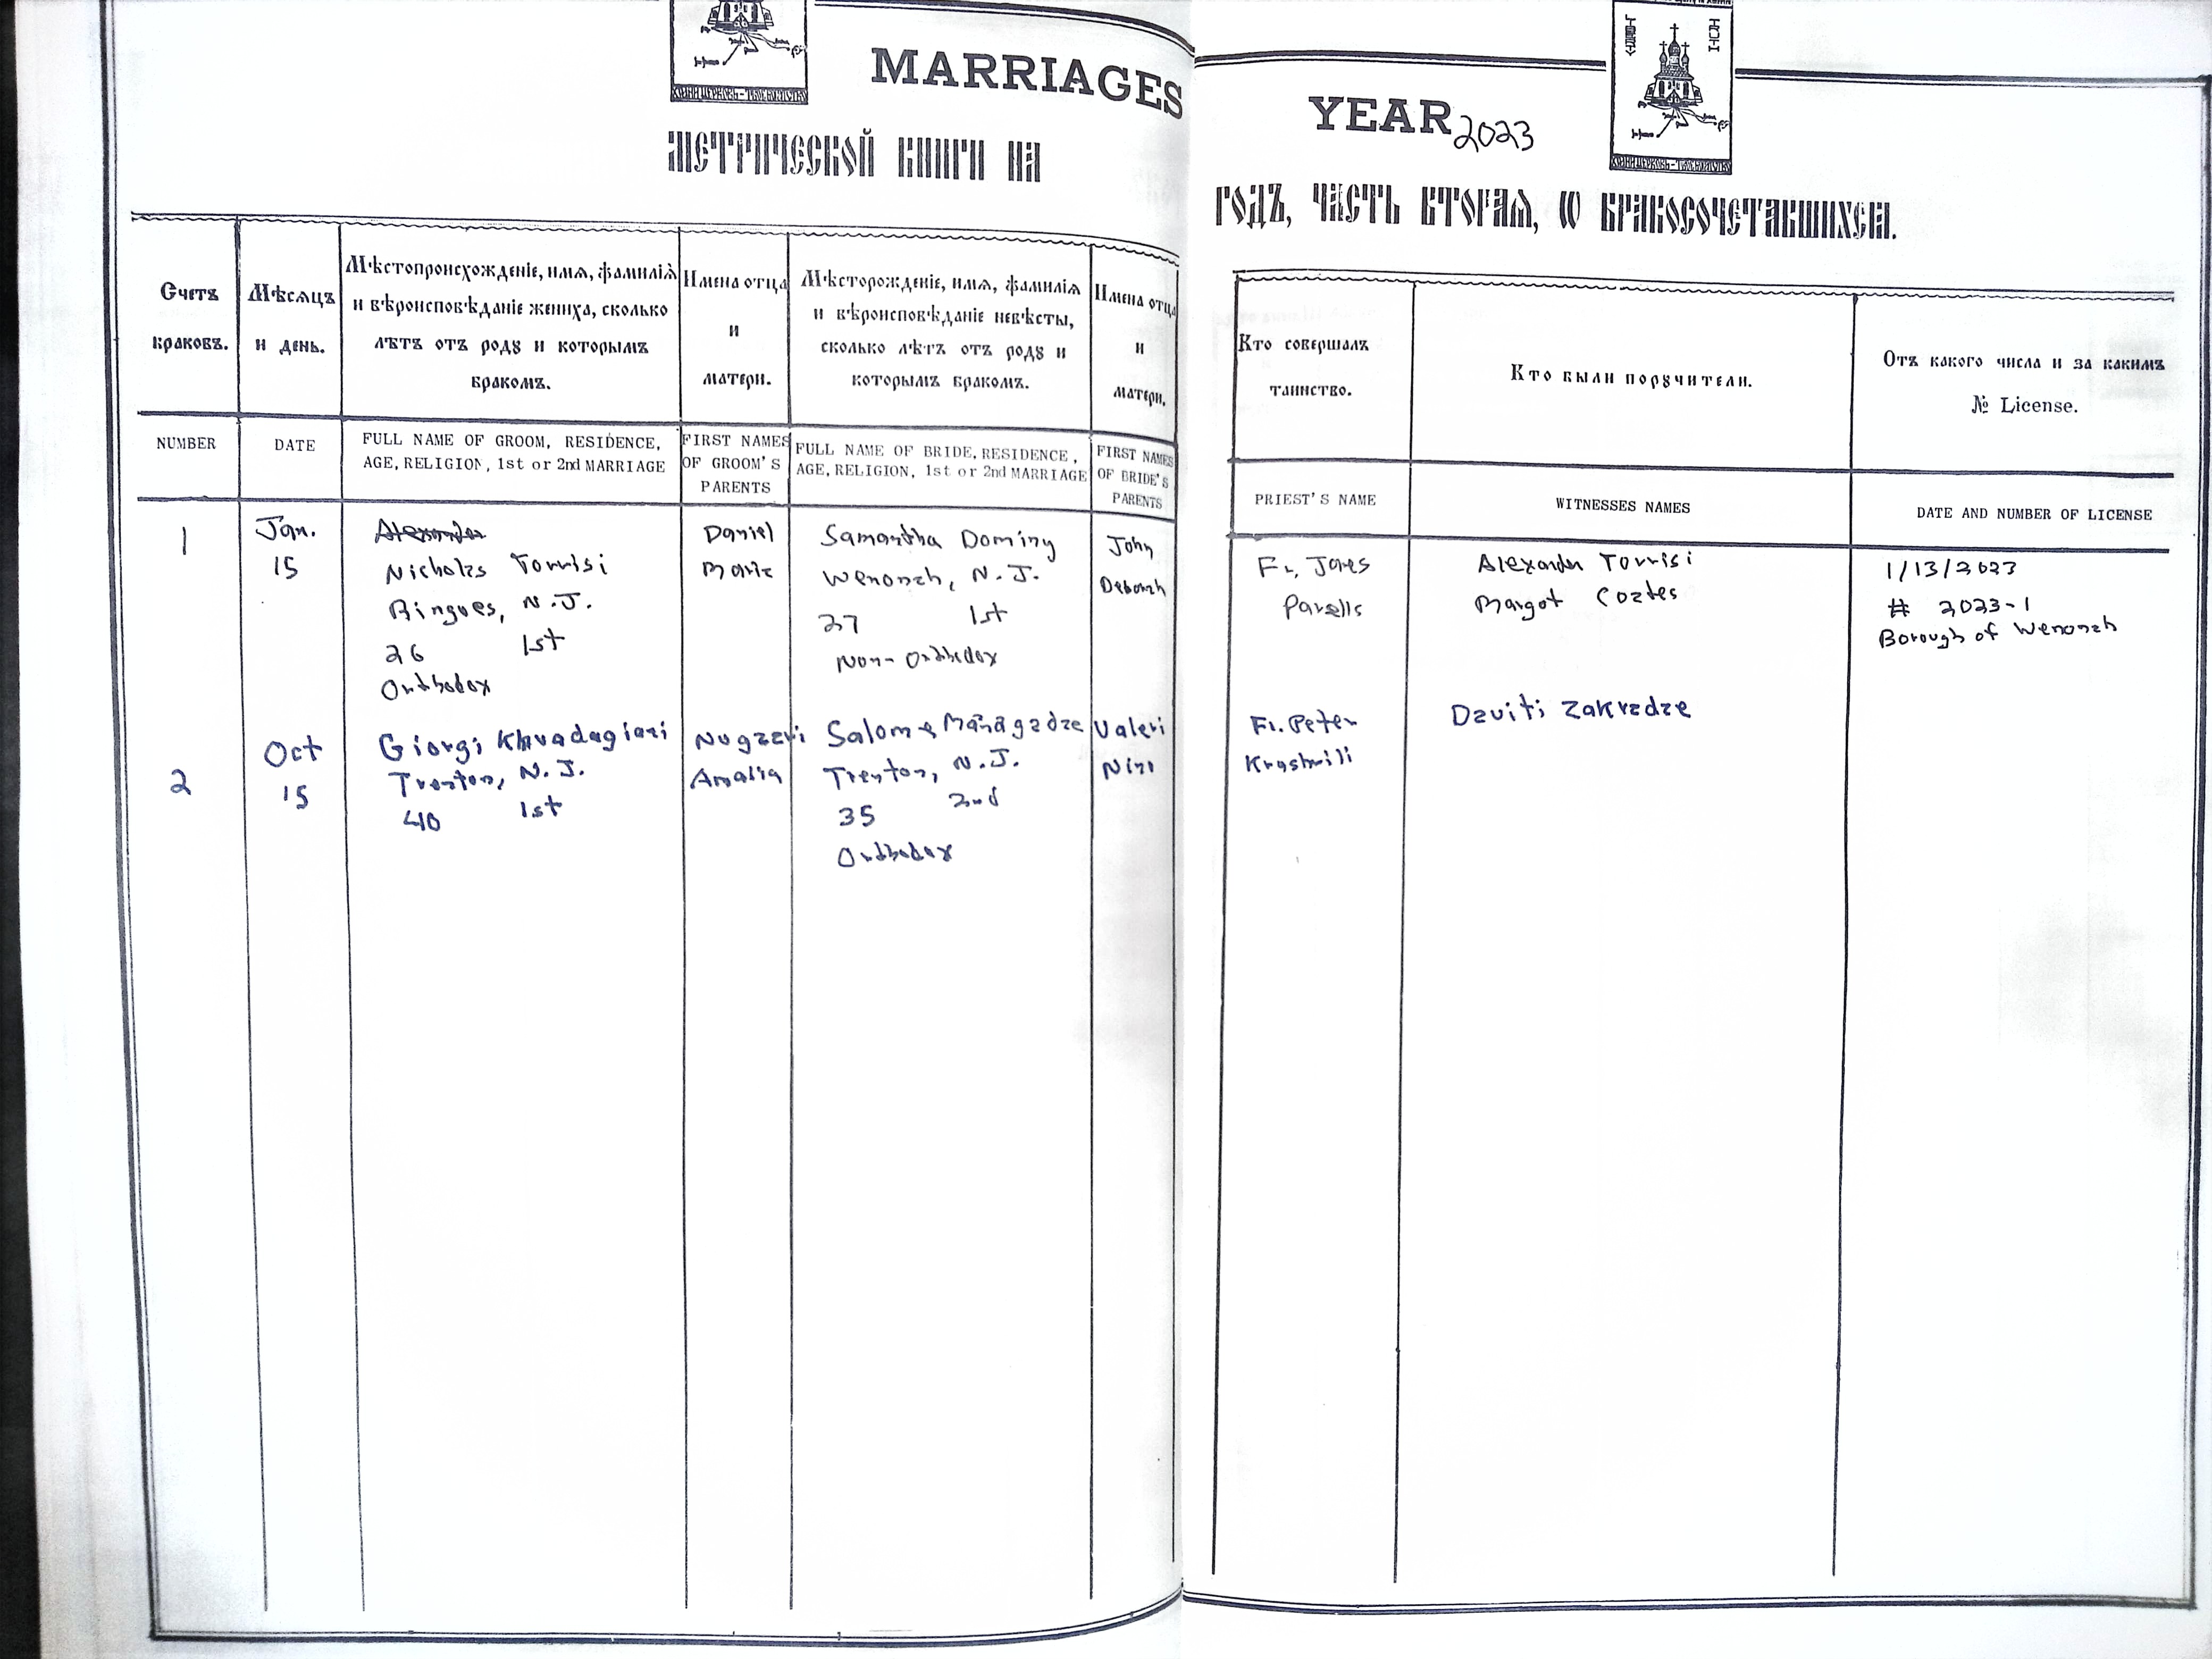 MARRIAGES
YEAR 2023
МЕТРИЧЕСКОЙ КНИГИ НА
ГОДЪ, ЧАСТЬ ВТОРАЯ, О БРАКОСОЧЕТАВШИХСЯ.
Счетъ
браковъ.
Мѣсяцъ
и день.
Мѣстопроисхожденіе, имя, фамилія
и вѣроисповѣданіе жениха, сколько
лѣтъ отъ роду и которымъ
бракомъ.
Имена отца
и
матери.
Мѣсторожденіе, имя, фамилія
и вѣроисповѣданіе невѣсты,
сколько лѣтъ отъ роду и
которымъ бракомъ.
Имена отца
и
матери.
Кто совершалъ
таинство.
Кто были поручители.
Отъ какого числа и за какимъ
№ License.
NUMBER
DATE
FULL NAME OF GROOM, RESIDENCE,
AGE, RELIGION, 1st or 2nd MARRIAGE
FIRST NAMES
OF GROOM'S
PARENTS
FULL NAME OF BRIDE, RESIDENCE,
AGE, RELIGION, 1st or 2nd MARRIAGE
FIRST NAMES
OF BRIDE'S
PARENTS
PRIEST'S NAME
WITNESSES NAMES
DATE AND NUMBER OF LICENSE
1
Jan.
15
Alexander
Nicholas Torrisi
Ringoes, N.J.
26 1st
Orthodox
Daniel
Maria
Samantha Dominy
Wenonah, N.J.
27 1st
Non-Orthodox
John
Deborah
Fr. James
Parells
Alexander Torrisi
Margot Coates
1/13/2023
# 2023-1
Borough of Wenonah
2
Oct
15
Giorgi Khvadagiani
Trenton, N.J.
40 1st
Nugzari
Amalia
Salome Managadze
Trenton, N.J.
35 2nd
Orthodox
Valeri
Nini
Fr. Peter
Daviti Zakradze